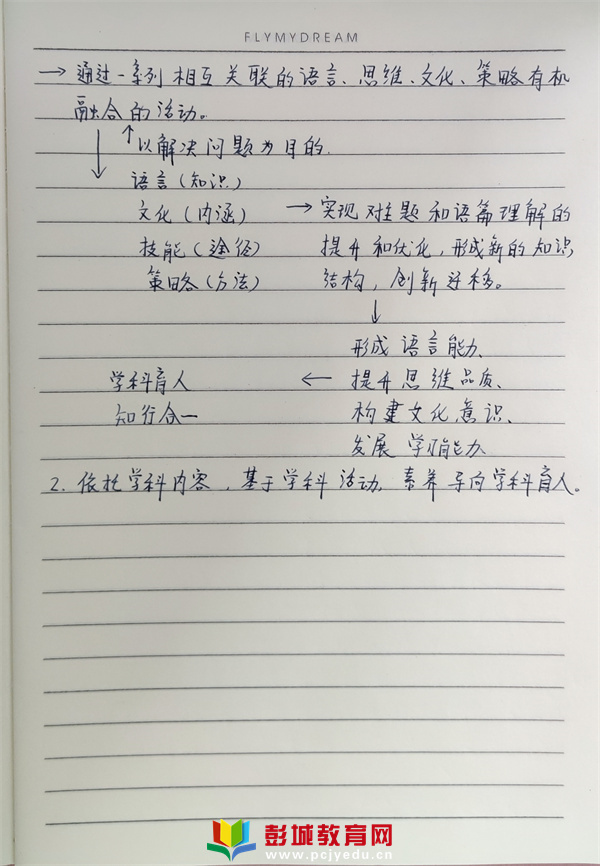 FLYMYDREAM
→ 通过一系列相互关联的语言、思维、文化、策略有机
融合的活动。
↓ ↑以解决问题为目的.
语言(知识)
文化(内涵) → 实现对主题和语篇理解的
技能(途径) 提升和优化,形成新的知识
策略(方法) 结构,创新迁移。
↓
形成语言能力、
学科育人 ← 提升思维品质、
知行合一 构建文化意识、
发展学习能力
2. 依托学科内容,基于学科活动,素养导向学科育人。
彭城教育网
www.pcjyedu.cn